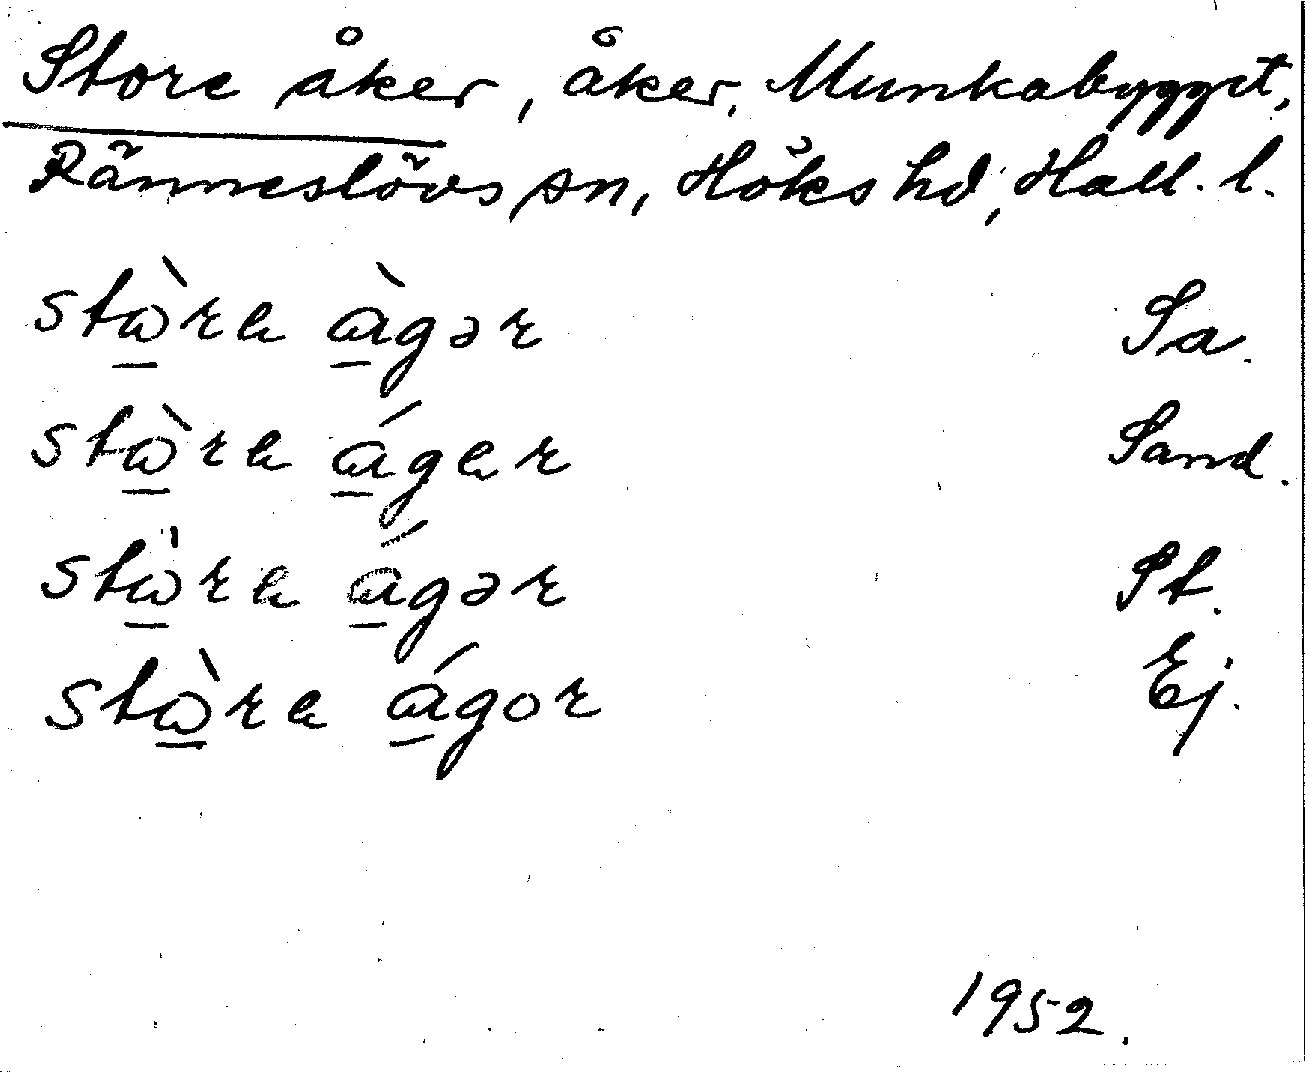 Store åker, åker, Munkabygget,
Ränneslövs sn, Höks hd, Hall. l.
stὼ̲ra à̲gər Sa.
stὼ̲ra á̲gar Sand.
stὼ̲ra á̲gər St.
stὼ̲ra á̲gor Ej.
1952.